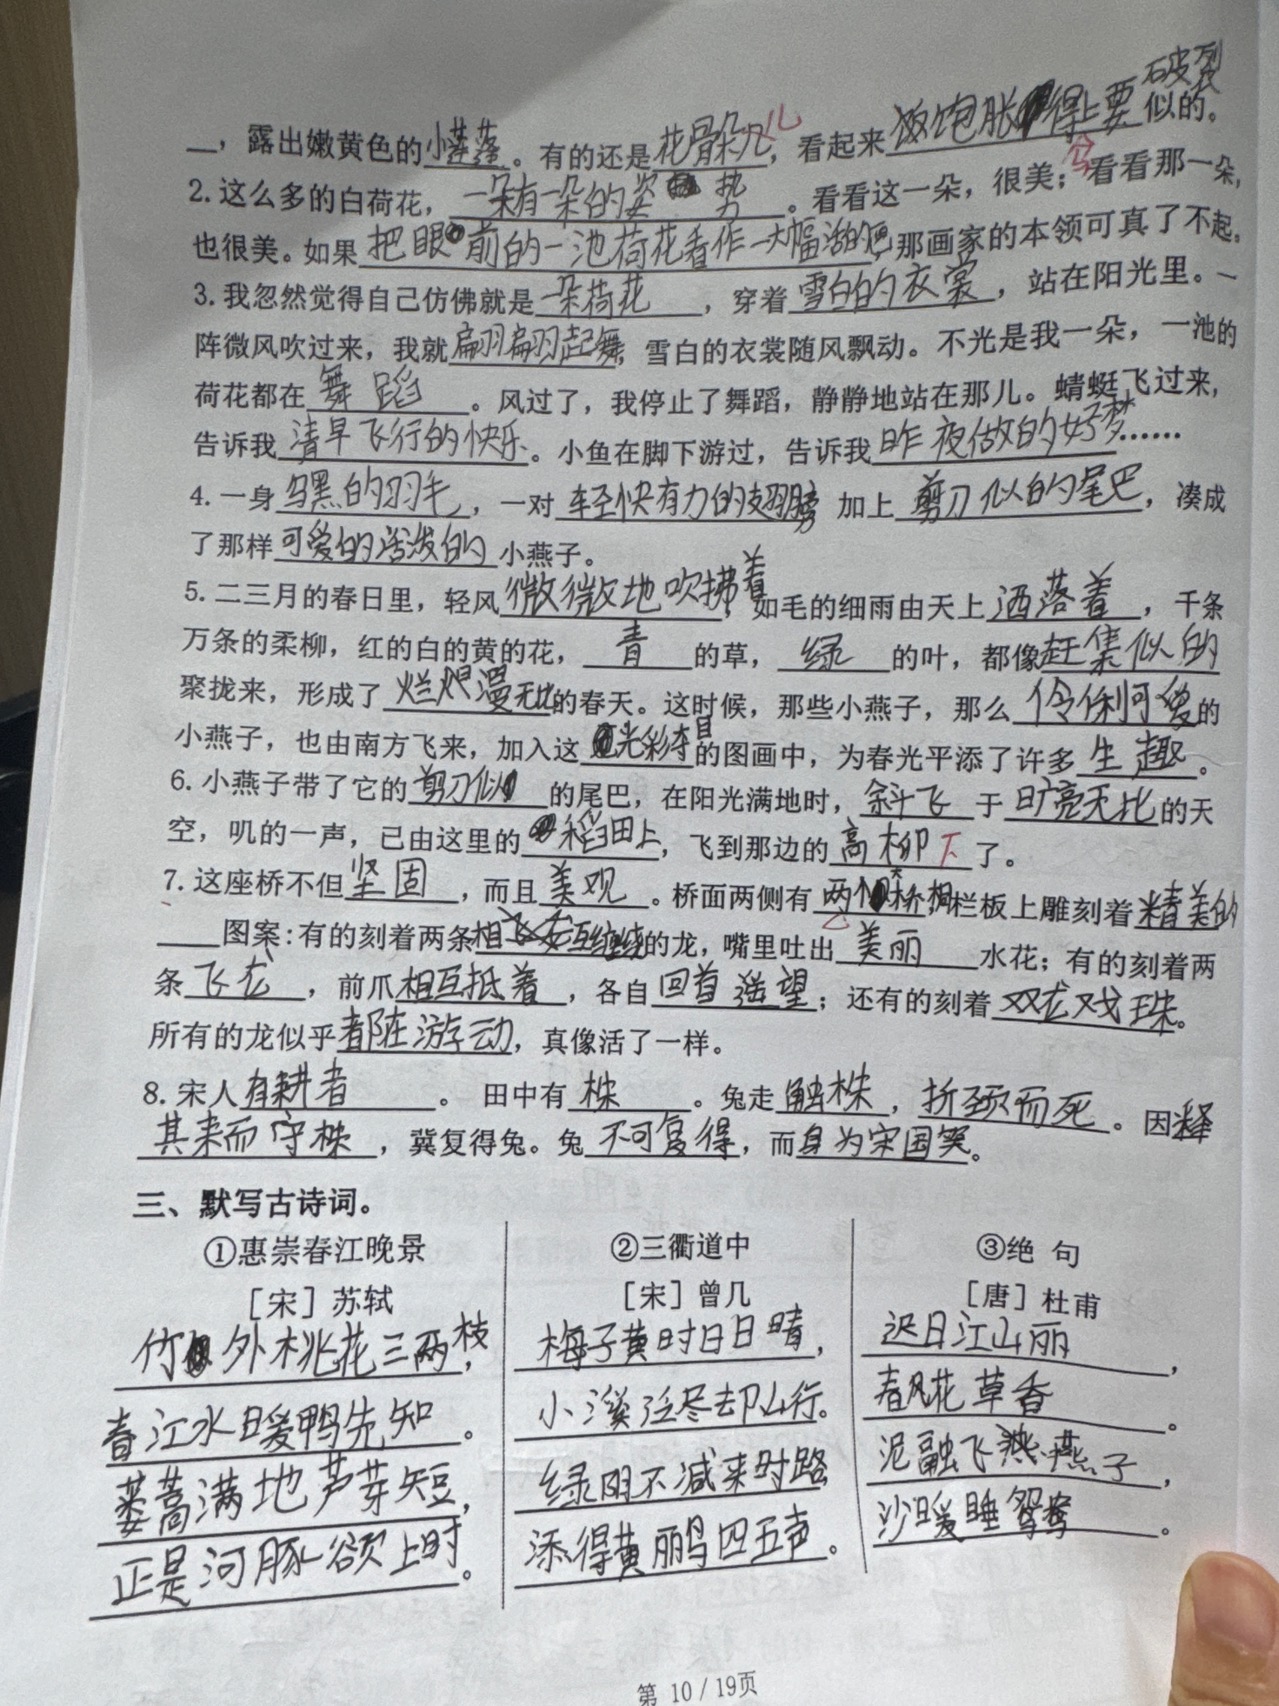 破裂
__，露出嫩黄色的小莲蓬。有的还是花骨朵儿，看起来饭饱胀得上要似的。
2. 这么多的白荷花，一朵有一朵的姿势。看看这一朵，很美；看看那一朵，
也很美。如果把眼前的一池荷花看作一大幅活的画，那画家的本领可真了不起。
3. 我忽然觉得自己仿佛就是一朵荷花，穿着雪白的衣裳，站在阳光里。一
阵微风吹过来，我就翩翩起舞，雪白的衣裳随风飘动。不光是我一朵，一池的
荷花都在舞蹈。风过了，我停止了舞蹈，静静地站在那儿。蜻蜓飞过来，
告诉我清早飞行的快乐。小鱼在脚下游过，告诉我昨夜做的好梦……
4. 一身乌黑的羽毛，一对轻快有力的翅膀 加上剪刀似的尾巴，凑成
了那样可爱的活泼的小燕子。
5. 二三月的春日里，轻风微微地吹拂着，如毛的细雨由天上洒落着，千条
万条的柔柳，红的白的黄的花，青的草，绿的叶，都像赶集似的
聚拢来，形成了烂漫无比的春天。这时候，那些小燕子，那么伶俐可爱的
小燕子，也由南方飞来，加入这光彩夺目的图画中，为春光平添了许多生趣。
6. 小燕子带了它的剪刀似的尾巴，在阳光满地时，斜飞于旷亮无比的天
空，叽的一声，已由这里的稻田上，飞到那边的高柳下了。
7. 这座桥不但坚固，而且美观。桥面两侧有栏板上雕刻着精美的
____图案：有的刻着两条相互缠绕的龙，嘴里吐出美丽水花；有的刻着两
条飞龙，前爪相互抵着，各自回首遥望；还有的刻着双龙戏珠。
所有的龙似乎都在游动，真像活了一样。
8. 宋人有耕者。 田中有株。兔走触株，折颈而死。因释
其耒而守株，冀复得兔。兔不可复得，而身为宋国笑。
三、默写古诗词。
①惠崇春江晚景
［宋］苏轼
竹外桃花三两枝，
春江水暖鸭先知。
蒌蒿满地芦芽短，
正是河豚欲上时。
②三衢道中
［宋］曾几
梅子黄时日日晴，
小溪泛尽却山行。
绿阴不减来时路
添得黄鹂四五声。
③绝 句
［唐］杜甫
迟日江山丽，
春风花草香。
泥融飞燕子，
沙暖睡鸳鸯。
第 10 / 19页